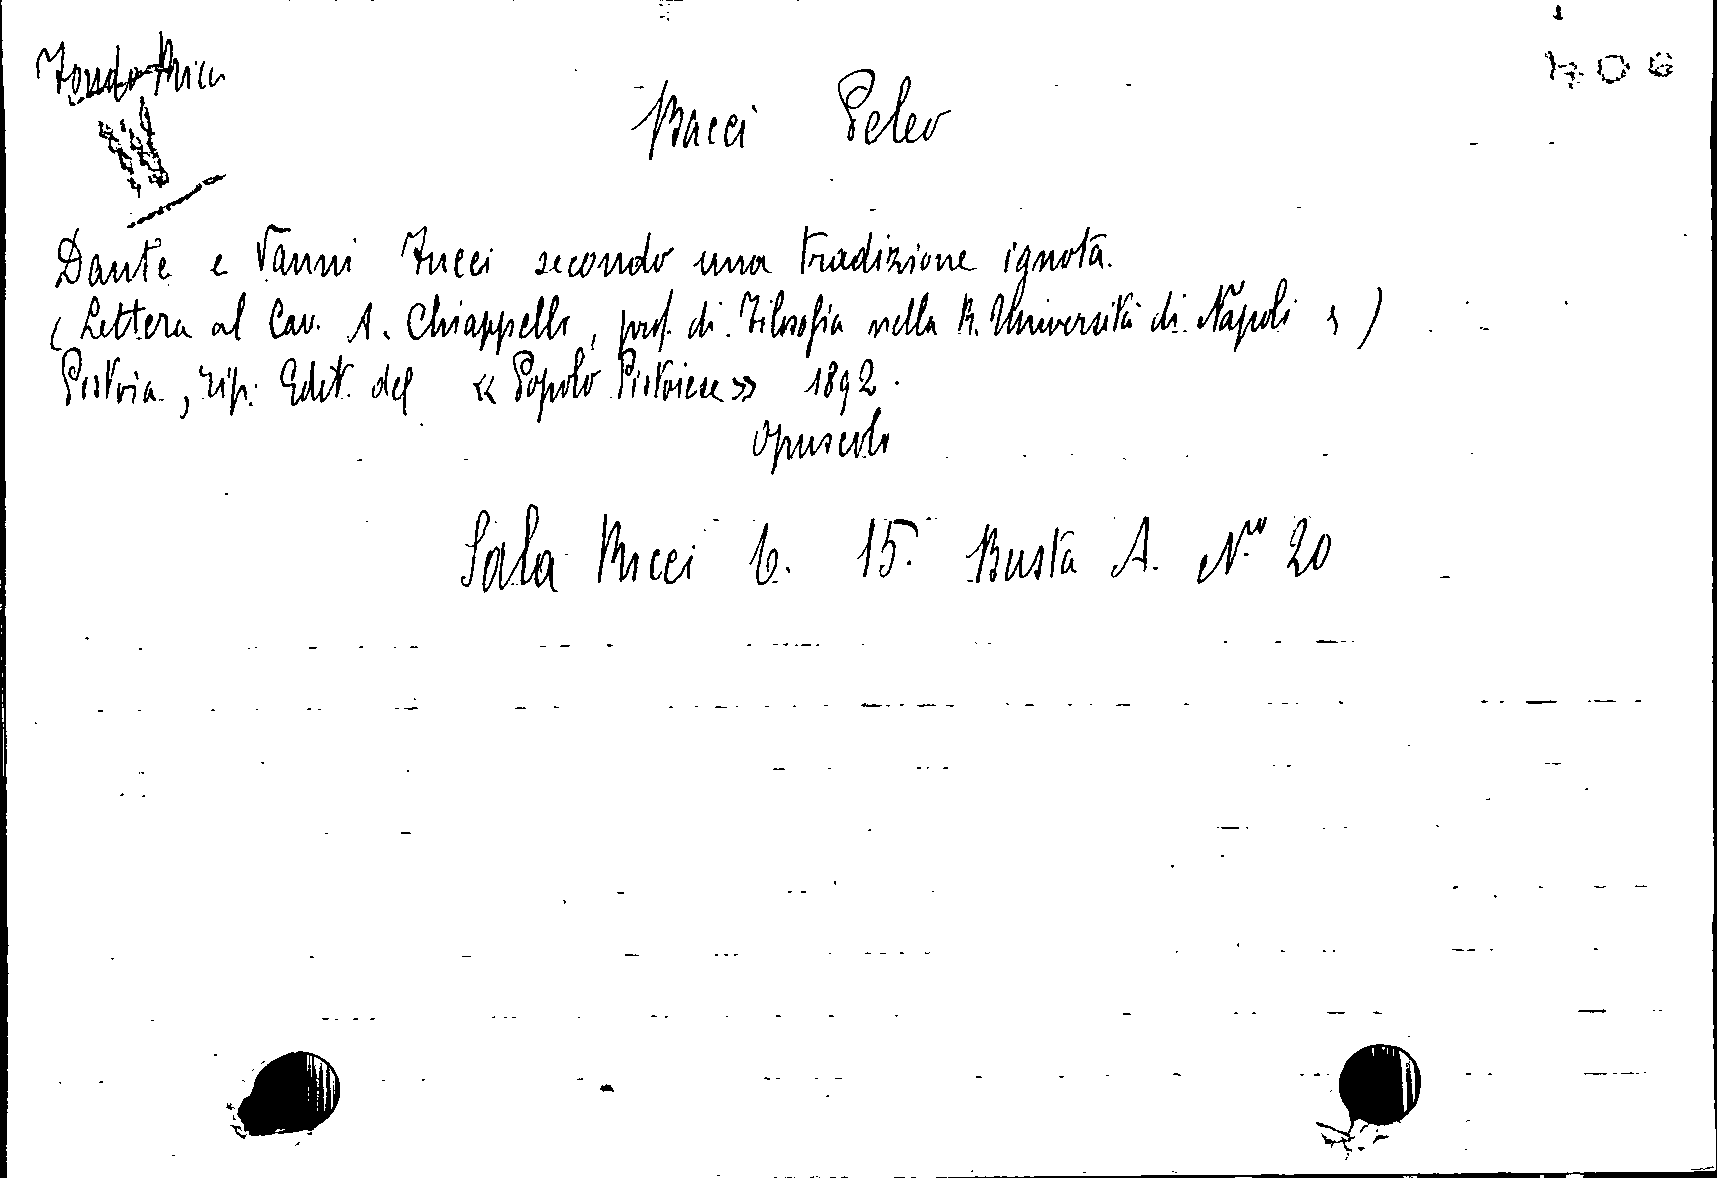 Fondo Ricci
706
Bacci Peleo
Dante e Vanni Fucci secondo una tradizione ignota.
(Lettera al Cav. A. Chiappelli, prof. di Filosofia nella R. Università di Napoli)
Pistoia, tip. Edit. del «Popolo Pistoiese» 1892.
opuscolo
Sala Ricci 6. 15. Busta A. N.ro 20